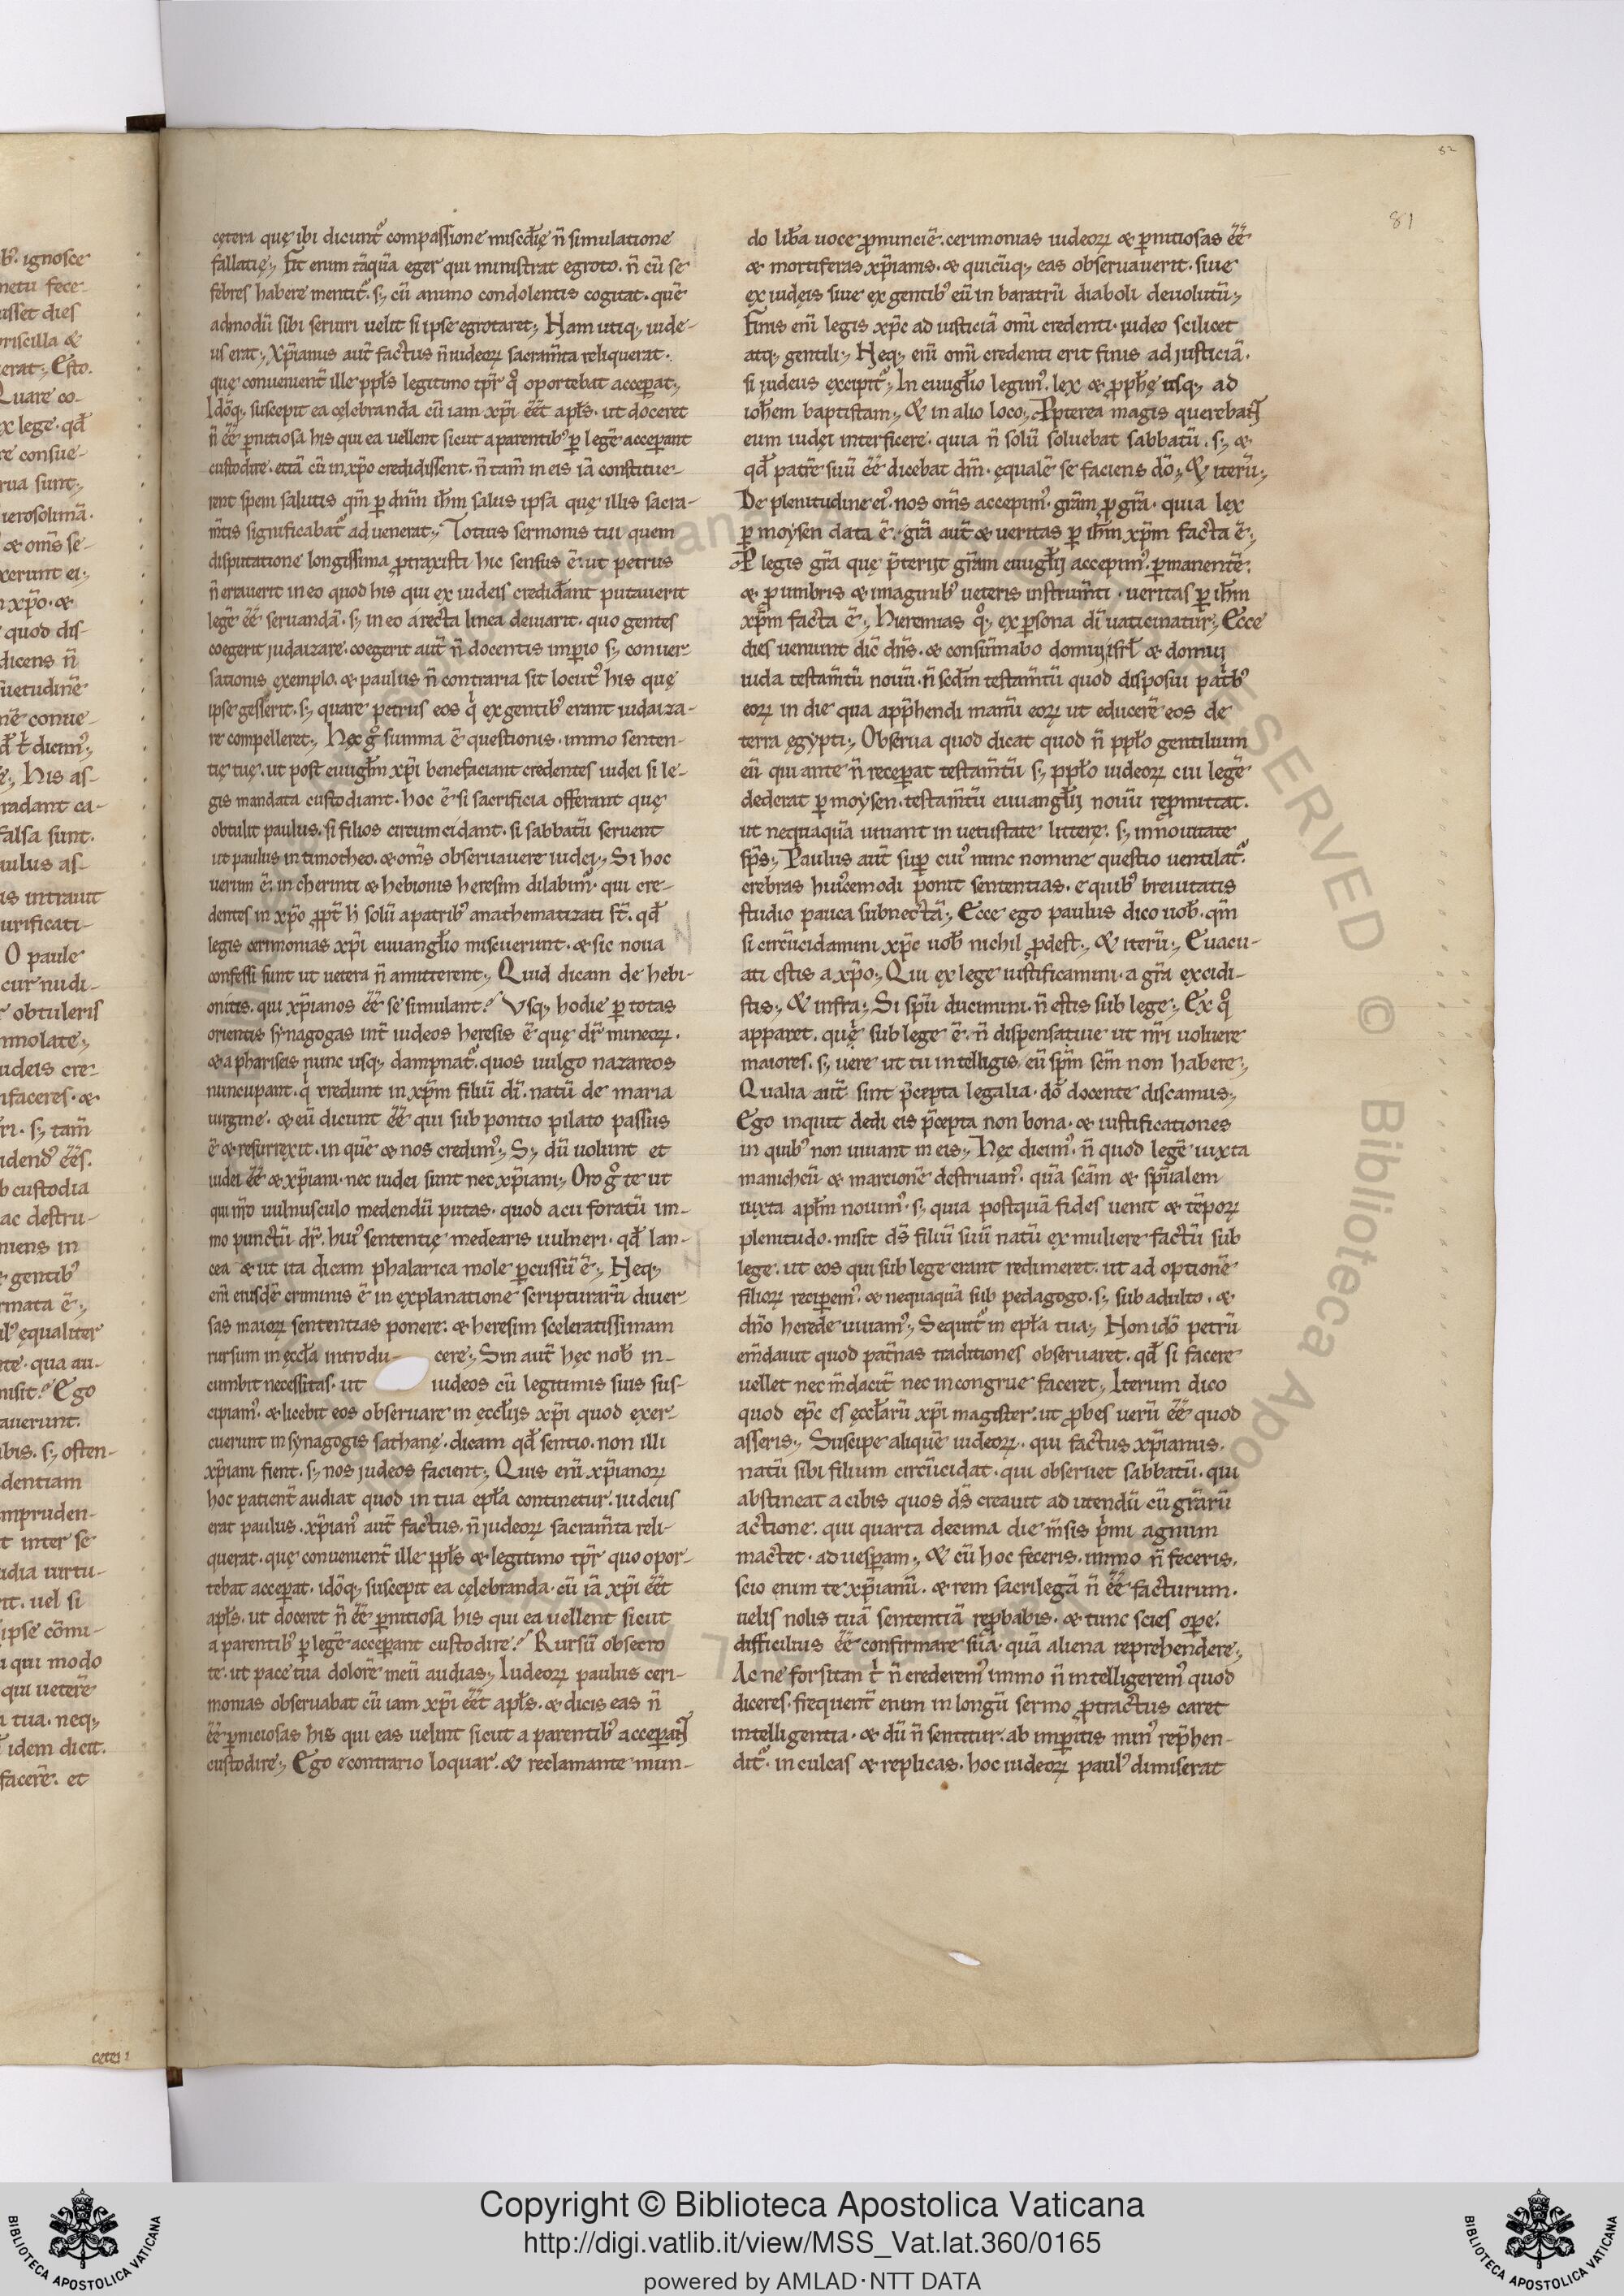 82
81
cętera quę ibi dicunt᷑ compassione misc̄dię n̄ simulatione
fallatię; Fit enim tāquā eger qui ministrat egroto. n̄ cū se
febres habere mentit᷑. s; cū animo condolentis cogitat. quē
admodū sibi seruiri uelit si ipse egrotaret; Nam utiq; iude-
us erat; Xp̄ianus aut̄ factus n̄ iudeoꝝ sacram̄ta reliquerat.
quę conuenient̄ ille pp̄ls legitimo tp̄r q° oportebat acceꝑat;
Idōq; suscepit ea cęlebranda cū iam xp̄i eēt ap̄ls. ut doceret
n̄ eē ꝑnitiosa his qui ea uellent sicut a parentibꝰ ꝑ legē acceꝑant
custodire. etiā cū in xp̄o credidissent. n̄ tam̄ in eis iā constitue-
rent spem salutis qm̄ ꝑ dnm̄ ih̄m salus ipsa quę illis sacra-
m̄tis significabat᷑ aduenerat; Totius sermonis tui quem
disputatione longissima ꝓtraxisti hic sensus ē. ut petrus
n̄ errauerit in eo quod his qui ex iudeis credid̄ant putauerit
legē eē seruandā. s; in eo a recta linea deuiarit. quo gentes
coegerit judaizare. coegerit aut̄ n̄ docentis imꝑio s; conuer-
sationis exemplo. & paulus n̄ contraria sit locutꝰ his quę
ipse gesserit. s; quare petrus eos qⁱ ex gentibꝰ erant iudaiza-
re compelleret; Hęc g° summa ē questionis. immo senten-
tię tuę. ut post euuglm̄ xp̄i benefaciant credentes iudei si le-
gis mandata custodiant. hoc ē si sacrificia offerant quę
obtulit paulus. si filios circumcidant. si sabbatū seruent
ut paulus in timotheo. & om̄s obseruauere iudei; Si hoc
uerum ē. in cherinti & hebionis heresim dilabim᷑. qui cre-
dentes in xp̄o ꝓpt̄ h̄ solū a patribꝰ anathematizati st̄. qd̄
legis cerimonias xp̄i euuanglīo miscuerunt. & sic noua
confessi sunt ut uetera n̄ amitterent; Quid dicam de hebi-
onitis. qui xp̄ianos eē se simulant? Vsq; hodie ꝑ totas
orientis synagogas int̄ iudeos heresis ē quę dr̄ mineoꝝ.
& a phariseis nunc usq; dampnat᷑. quos uulgo nazareos
nuncupant. qⁱ credunt in xp̄m filiū dī. natū de maria
uirgine. & eū dicunt eē qui sub pontio pilato passus
ē & resurrexit. in quē & nos credimꝰ; S; dū uolunt et
iudei eē & xp̄iani. nec iudei sunt nec xp̄iani; Oro g° te ut
qui nr̄o uulnusculo medendū putas. quod acu foratū im-
mo punctū dr̄. huiꝰ sententię medearis uulneri. qd̄ lan-
cea & ut ita dicam phalarica mole ꝑcussū ē; Neq;
em̄ eiusdē criminis ē in explanatione scripturarū diuer-
sas maioꝝ sententias ponere. & heresim sceleratissimam
rursum in ęccl̄a introdu- cere; Sin aut̄ hęc nob̄ in-
cumbit necessitas. ut iudeos cū legitimis suis sus-
cipiamꝰ. & licebit eos obseruare in ęccl̄iis xp̄i quod exer-
cuerunt in synagogis sathanę. dicam qd̄ sentio. non illi
xp̄iani fient. s; nos judeos facient; Quis em̄ xp̄ianoꝝ
hoc patient̄ audiat quod in tua epl̄a continetur. iudeus
erat paulus. xp̄ianꝰ aut̄ factus. n̄ judeoꝝ sacram̄ta reli-
querat. quę conuenient̄ ille pp̄ls & legitimo tp̄r quo opor-
tebat acceꝑat. idōq; suscepit ea cęlebranda. cū iā xp̄i eēt
ap̄ls. ut doceret n̄ eē ꝑnitiosa his qui ea uellent sicut
a parentibꝰ ꝑ legē acceꝑant custodire? Rursū obsecro
te. ut pace tua dolorē meū audias; Iudeoꝝ paulus ceri-
monias obseruabat cū iam xp̄i eēt ap̄ls. & dicis eas n̄
eē ꝑniciosas his qui eas uelint sicut a parentibꝰ acceꝑant
custodire; Ego econtrario loquar. & reclamante mun-
do lib̄a uoce ꝓnunciē. cerimonias iudeoꝝ & ꝑnitiosas eē
& mortiferas xp̄ianis. & quicūq; eas obseruauerit. siue
ex iudęis siue ex gentibꝰ eū in baratrū diaboli deuolutū;
Finis em̄ legis xp̄c ad iusticiā omī credenti. iudeo scilicet
atq; gentili; Neq; em̄ omī credenti erit finis ad justiciā.
si judeus excipit᷑; In euuglīo legimꝰ. lex & ꝓph̄ę usq; ad
ioh̄em baptistam; & in alio loco; Ꝓpterea magis querebant
eum iudęi interficere. quia n̄ solū soluebat sabbatū. s; &
qd̄ patrē suū eē dicebat dm̄. ęqualē se faciens dō; & iterū;
De plenitudine eiꝰ. nos om̄s accepimꝰ. grām ꝓ grā. quia lex
ꝑ moysen data ē. grā aut̄ & ueritas ꝑ ih̄m xp̄m facta ē;
Ꝓ legis grā quę p̄terijt grām euuglīj accepimꝰ. ꝑmanentē.
& ꝓ umbris & imaginibꝰ ueteris instrum̄ti. ueritas ꝑ ih̄m
xp̄m facta ē; Hieremias q°; ex ꝑsona dī uaticinatur; Ecce
dies ueniunt dic̄ dn̄s. & consum̄abo domuj isrl̄ & domuj
iuda testam̄tū nouū. n̄ scdm̄ testam̄tū quod disposui patⁱbꝰ
eoꝝ in die qua app̄hendi manū eoꝝ ut educerē eos de
terra ęgypti; Obserua quod dicat quod n̄ ppl̄o gentilium
eū qui ante n̄ receꝑat testam̄tū s; ppl̄o iudeoꝝ cui legē
dederat ꝑ moysen. testam̄tū euuanglīj nouū reꝓmittat.
ut nequaquā uiuant in uetustate litterę. s; in nouitate
sp̄s; Paulus aut̄ suꝑ cuiꝰ nunc nomine questio uentilat᷑.
crebras huiꝰcemodi ponit sententias. e quibꝰ breuitatis
studio pauca subnectā; Ecce ego paulus dico uob̄. qm̄
si circūcidamini xp̄c uob̄ nichil ꝓdest; & iterū; Euacu-
ati estis a xp̄o; Qui ex lege iustificamini. a grā excidi-
stis; & infra; Si spū ducimini. n̄ estis sub lege; Ex q°
apparet. quę sub lege ē. n̄ dispensatiue ut nr̄i uoluere
maiores. s; uere ut tu intelligis. eū spm̄ scm̄ non habere;
Qualia aut̄ sint p̄cepta legalia. dō docente discamus;
Ego inquit dedi eis p̄cepta non bona. & iustificationes
in quibꝰ non uiuant in eis; Hęc dicimꝰ. n̄ quod legē iuxta
manicheū & marcionē destruamꝰ. quā scām & spūalem
iuxta apl̄m nouimꝰ. s; quia postquā fides uenit & tēpoꝝ
plenitudo. misit ds̄ filiū suū natū ex muliere factū sub
lege. ut eos qui sub lege erant redimeret. ut adoptionē
filioꝝ reciꝑemꝰ. & nequaquā sub pedagogo. s; sub adulto. &
dn̄o herede uiuamꝰ; Sequit᷑ in epl̄a tua; Non idō petrū
em̄dauit quod pat̄nas traditiones obseruaret. qd̄ si facere
uellet nec m̄dacit̄ nec incongrue faceret; Iterum dico
quod ep̄c es ęccl̄arū xp̄i magister. ut ꝓbes uerū eē quod
asseris; Suscipe aliquē iudeoꝝ. qui factus xp̄ianus.
natū sibi filium circūcidat. qui obseruet sabbatū. qui
abstineat a cibis quos ds̄ creauit ad utendū cū grārū
actione. qui quarta decima die m̄sis pⁱmi agnum
mactet. ad uesꝑam; & cū hoc feceris. immo n̄ feceris.
scio enim te xp̄ianū. & rem sacrilegā n̄ eē facturum.
uelis nolis tuā sententiā reꝓbabis. & tunc scies oꝑe.
difficilius eē confirmare sua. quā aliena reprehendere;
Ac ne forsitan tⁱ n̄ crederemꝰ immo n̄ intelligeremꝰ quod
diceres. frequent̄ enim in longū sermo ꝓtractus caret
intelligentia. & dū n̄ sentitur. ab imꝑitis minꝰ rep̄hen-
dit᷑. inculcas & replicas. hoc iudeoꝝ paulꝰ dimiserat
ceteri
Copyright © Biblioteca Apostolica Vaticana
http://digi.vatlib.it/view/MSS_Vat.lat.360/0165
powered by AMLAD·NTT DATA
BIBLIOTECA APOSTOLICA VATICANA
BIBLIOTECA APOSTOLICA VATICANA